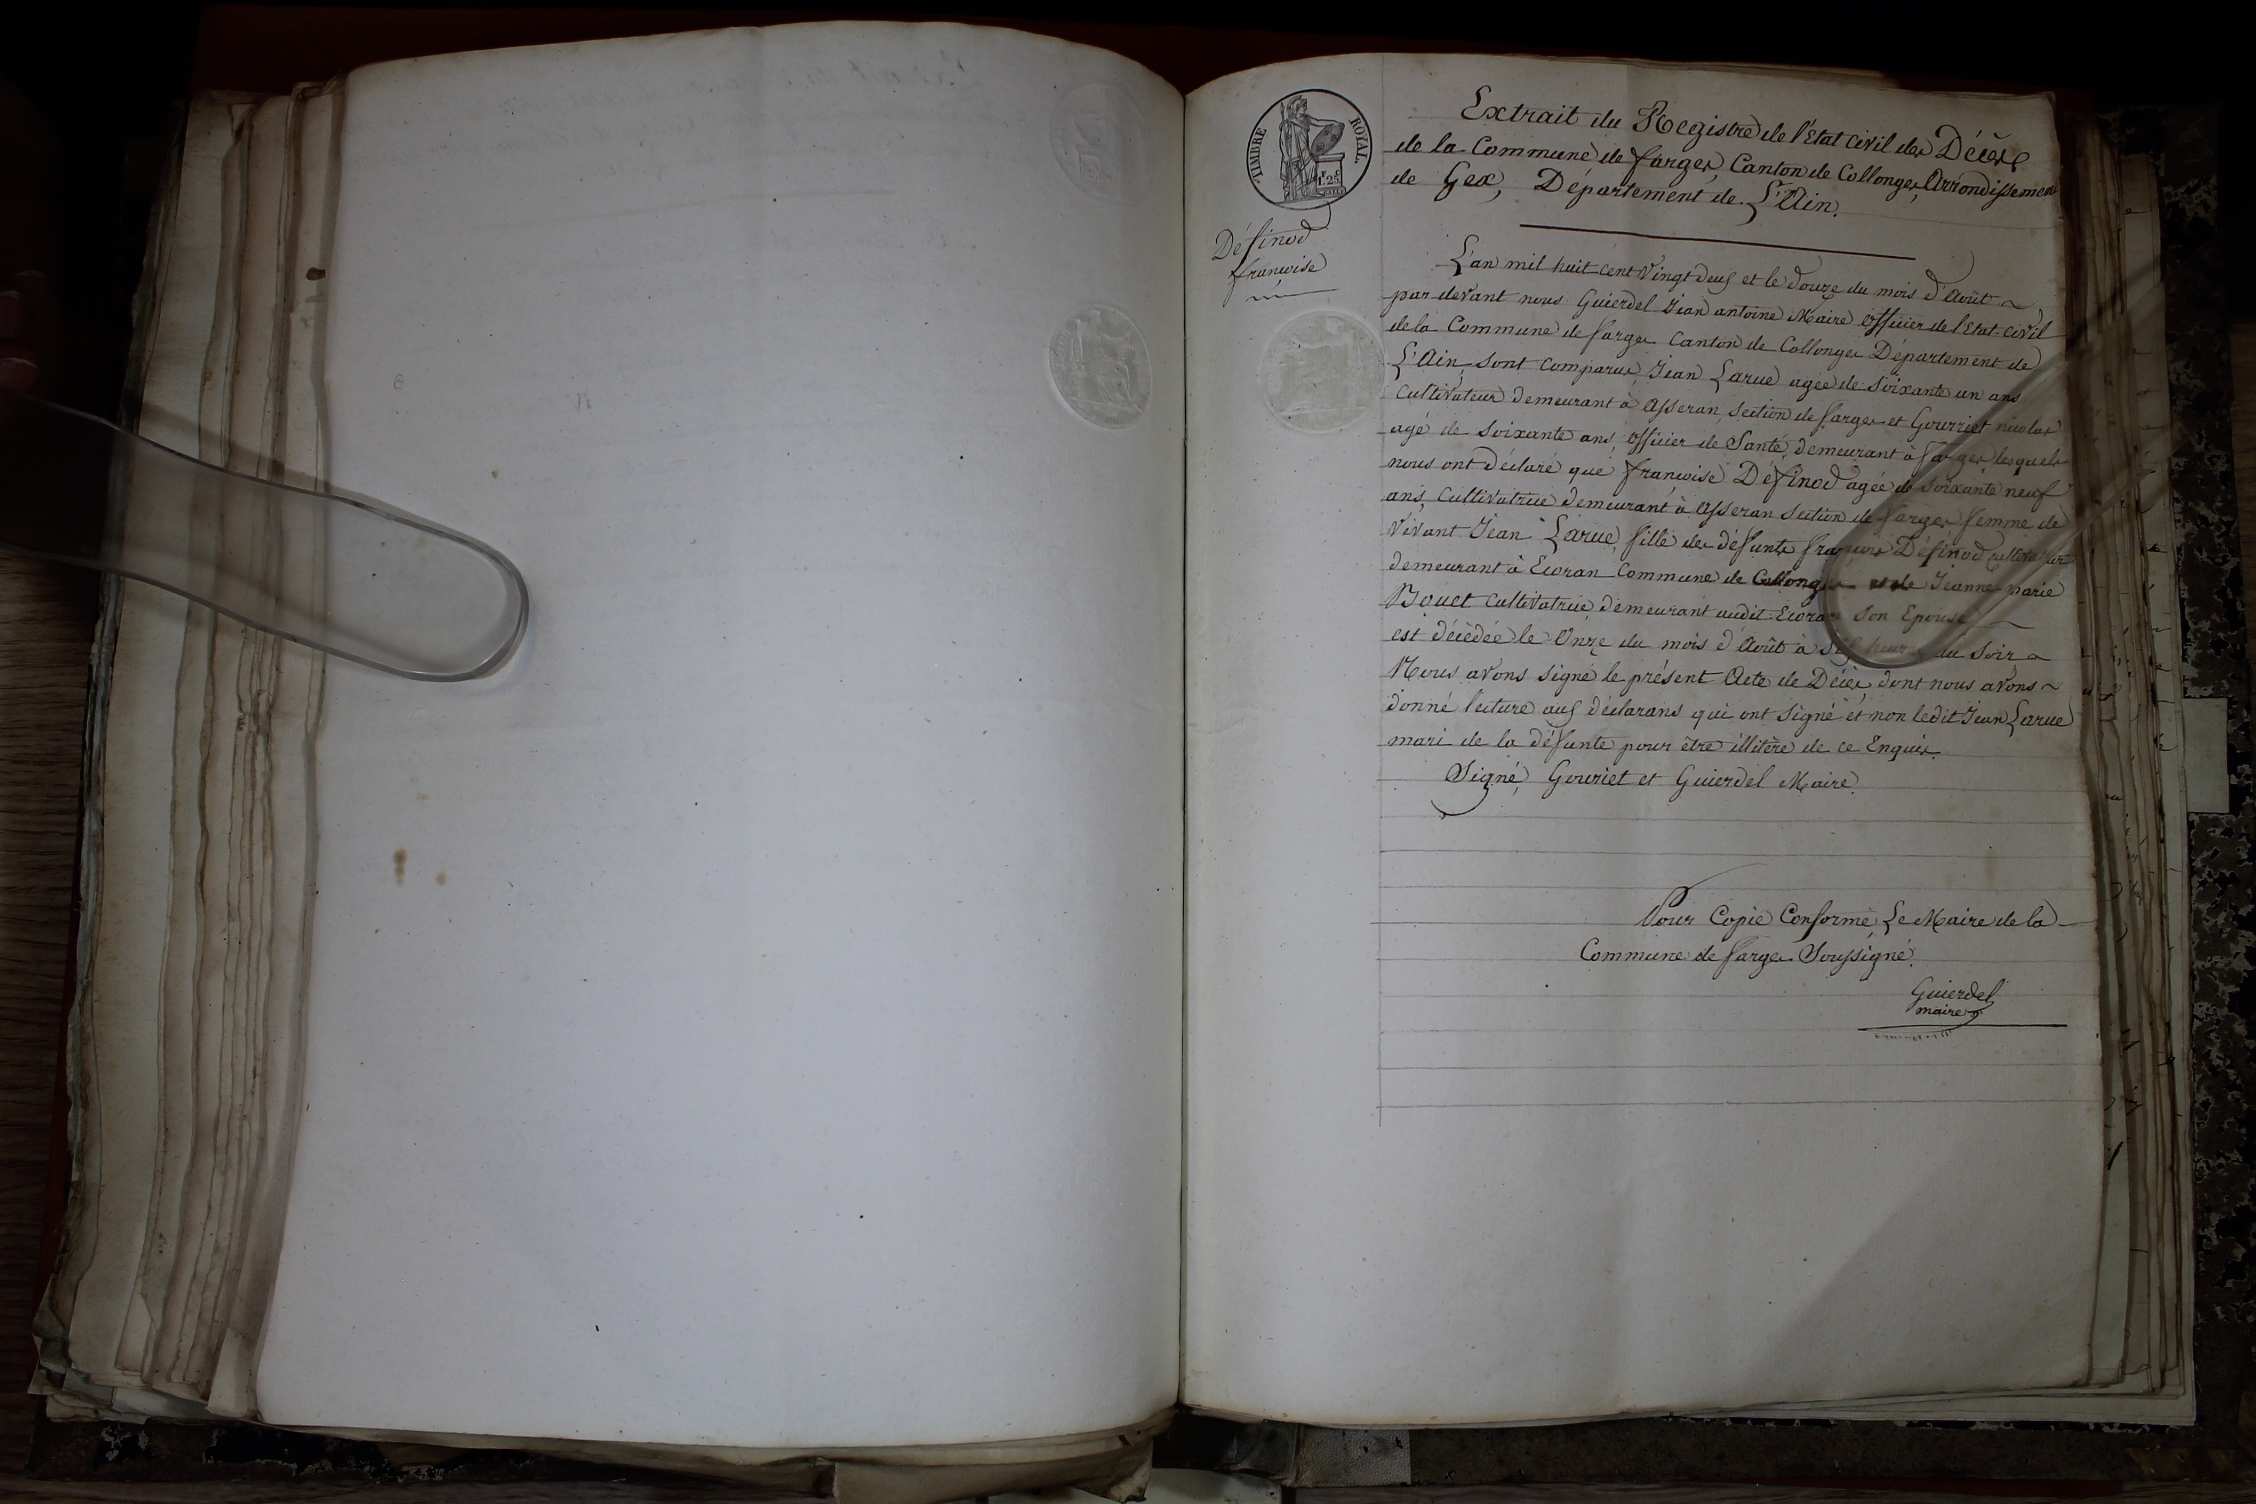 TIMBRE ROYAL
1.25
Extrait du Registre de l'Etat civil des Décès
de la Commune de farges, Canton de Collonges, Arrondissement
de Gex, Département de L'Ain.
Définod
francoise
L'an mil huit cent vingt deux et le douze du mois d'Août
par devant nous Guierdel Jean antoine Maire officier de l'Etat-civil
de la Commune de farges Canton de Collonges Département de
L'Ain sont comparus Jean Larue agée de soixante un ans
cultivateur demeurant à Asseran, section de farges et Gouriet nicolas
agé de soixante ans officier de Santé, demeurant à farges lesquels
nous ont déclaré que francoise Définod agée de soixante neuf
ans, cultivatrice demeurant à Asseran section de farges femme de
vivant Jean Larue, fille des défunts françois Définod cultivateur
demeurant à Ecoran commune de Collonges et de Jeanne marie
Bouet cultivatrice demeurant audit Ecoran son Epouse
est décèdée le Onze du mois d'Août à six heures du soir
Nous avons signé le présent Acte de Décès, dont nous avons
donné lecture aux déclarans qui ont signé et non ledit Jean Larue
mari de la défunte pour être illitère de ce Enquis.
Signé, Gouriet et Guierdel Maire.
Pour Copie Conforme, Le Maire de la
Commune de farges Soussigné.
Guierdel
maire